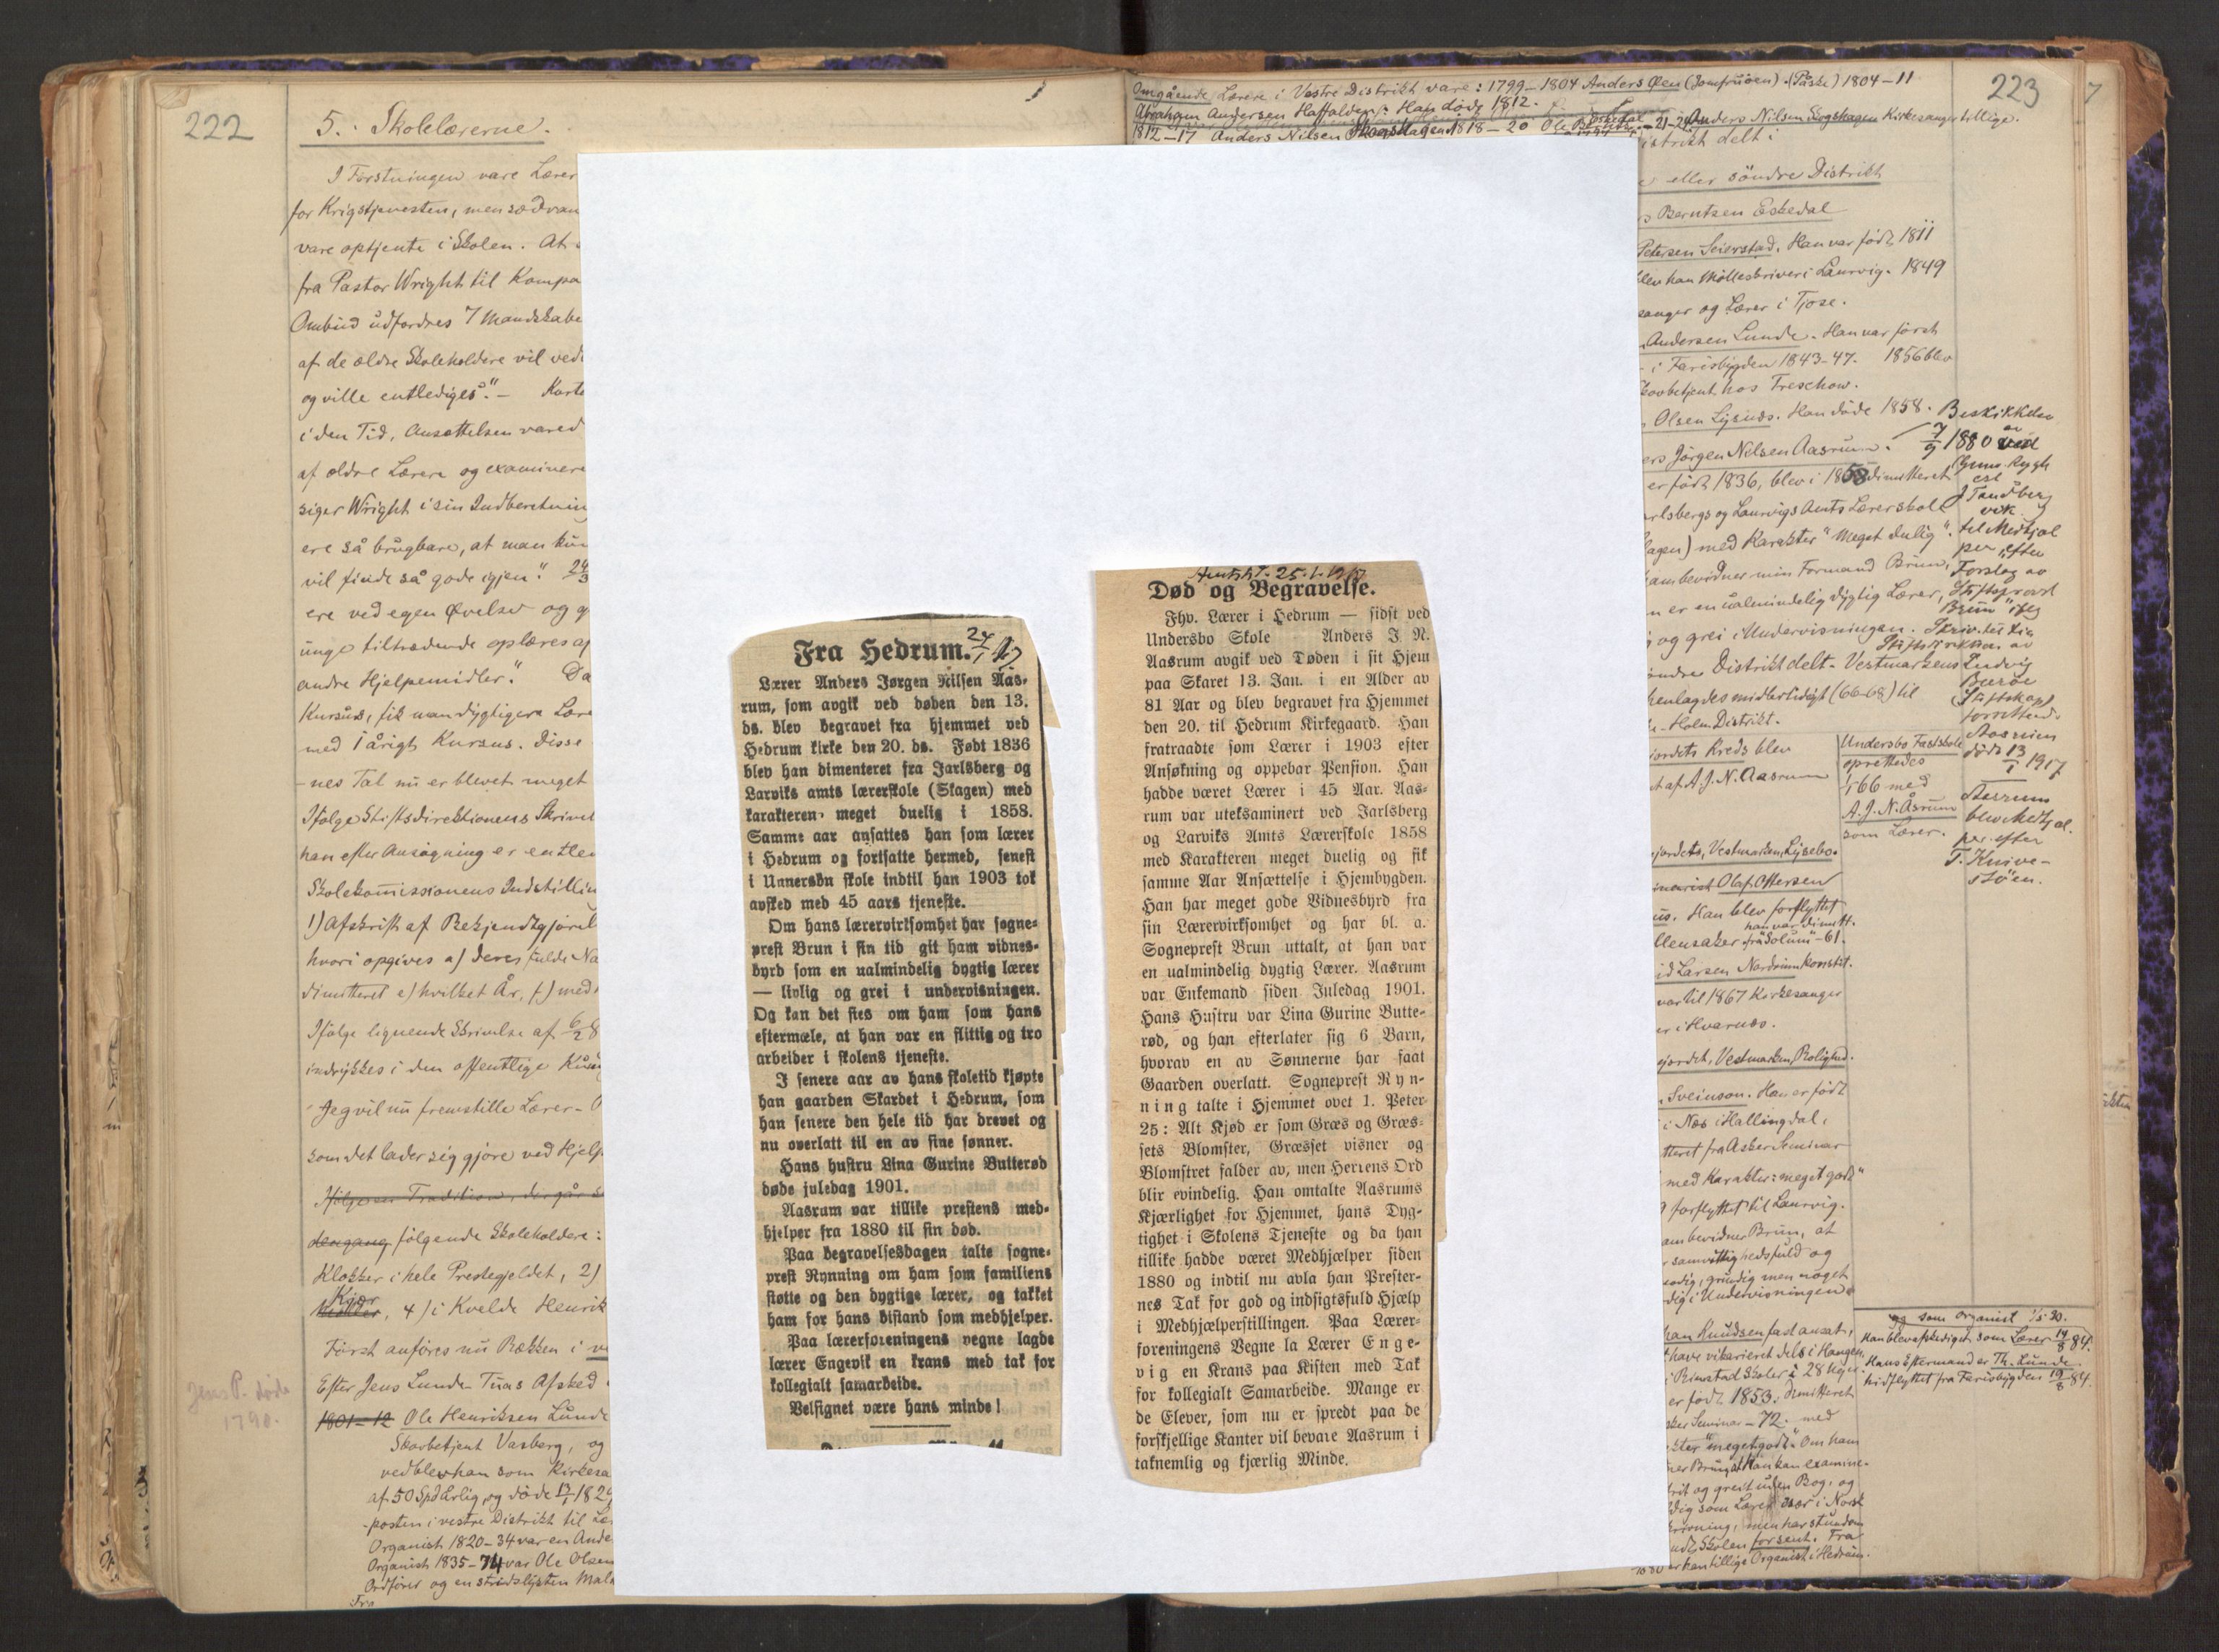 222
5. Skolelærerne.
I Førstningen vare Lærer
for Krigstjenesten, men sædvan
vare optjente i Skolen. At
fra Pastor Wright til Kompa
Ombud udfordres 7 Mandskabe
af de ældre Skoleholdere vil ved
og ville entlediges." —
i den Tid, Ansættelsen vared
af ældre Lærere og examinere
siger Wright i sin Indberetning
ere så brugbare, at man kun
vil finde så gode igjen."
ere ved egen Øvelse og
unge tiltrædende oplæres af
andre Hjelpemidler". Da
Kursus, fik man dygtigere Lære
med 1 årigt Kursus. Disse
-nes Tal nu er blevet meget
Ifølge Stiftsdirektionens Skrivel
han efter Ansøgning er entle
Skolekommissionens Indstilling
1) Afskrift af Bekjendtgjørel
hvori opgives a) deres fulde Na
dimitteret e) hvilket År, f) med
Ifølge lignende Skrivelse af 6/2 8
indrykkes i den offentlige
Jeg vil nu fremstille Lærer-
som det lader sig gjøre ved Hjelp
Ifølge en Tradition, der går
dengang følgende Skoleholdere:
Klokker i hele Prestegjeldet, 2)
Kjær
4) i Kvelde Henrik
Først anføres nu Rækken i
Efter Jens Lunde Tuas Afsked
1801–12 Ole Henriksen Lunde
Skovbetjent Vasberg, og
vedblev han som Kirkesa
af 50 Spd årlig, og døde
-posten i vestre Distrikt til
Organist 1820–34 var en Ande
Organist 1835–74 var Ole Olsen
Ordfører og en stridslysten
Fra
Jens P. døde
1790.
Fra Hedrum. 24/1 17
Lærer Anders Jørgen Nilsen Aas-
rum, som avgik ved døden den 13.
ds. blev begravet fra hjemmet ved
Hedrum kirke den 20. ds. Født 1836
blev han dimenteret fra Jarlsberg og
Larviks amts lærerskole (Skagen) med
karakteren meget duelig i 1858.
Samme aar ansattes han som lærer
i Hedrum og fortsatte hermed, senest
i Unnersbn skole indtil han 1903 tok
avsked med 45 aars tjeneste.
Om hans lærervirksomhet har sogne-
prest Brun i sin tid git ham vidnes-
byrd som en ualmindelig dygtig lærer
— livlig og grei i undervisningen.
Og kan det sies om ham som hans
eftermæle, at han var en flittig og tro
arbeider i skolens tjeneste.
I senere aar av hans skoletid kjøpte
han gaarden Skardet i Hedrum, som
han senere den hele tid har drevet og
nu overlatt til en av sine sønner.
Hans hustru Lina Gurine Butterød
døde juledag 1901.
Aasrum var tillike prestens med-
hjelper fra 1880 til sin død.
Paa begravelsesdagen talte sogne-
prest Rynning om ham som familiens
støtte og den dygtige lærer, og takket
ham for hans bistand som medhjelper.
Paa lærerforeningens vegne lagde
lærer Engevik en krans med tak for
kollegialt samarbeide.
Velsignet være hans minde!
Amtst. 25.1.1917
Død og Begravelse.
Fhv. Lærer i Hedrum — sidst ved
Undersbo Skole Anders J. N.
Aasrum avgik ved Døden i sit Hjem
paa Skaret 13. Jan. i en Alder av
81 Aar og blev begravet fra Hjemmet
den 20. til Hedrum Kirkegaard. Han
fratraadte som Lærer i 1903 efter
Ansøkning og oppebar Pension. Han
hadde været Lærer i 45 Aar. Aas-
rum var uteksaminert ved Jarlsberg
og Larviks Amts Lærerskole 1858
med Karakteren meget duelig og fik
samme Aar Ansættelse i Hjembygden.
Han har meget gode Vidnesbyrd fra
sin Lærervirksomhet og har bl. a.
Sogneprest Brun uttalt, at han var
en ualmindelig dygtig Lærer. Aasrum
var Enkemand siden Juledag 1901.
Hans Hustru var Lina Gurine Butte-
rød, og han efterlater sig 6 Barn,
hvorav en av Sønnerne har faat
Gaarden overlatt. Sogneprest Ryn-
ning talte i Hjemmet ovet 1. Peter
25: Alt Kjød er som Græs og Græs-
sets Blomster, Græsset visner og
Blomstret falder av, men Herrens Ord
blir evindelig. Han omtalte Aasrums
Kjærlighet for Hjemmet, hans Dyg-
tighet i Skolens Tjeneste og da han
tillike hadde været Medhjælper siden
1880 og indtil nu avla han Prester-
nes Tak for god og indsigtsfuld Hjælp
i Medhjælperstillingen. Paa Lærer-
foreningens Vegne la Lærer Enge-
vig en Krans paa Kisten med Tak
for kollegialt Samarbeide. Mange er
de Elever, som nu er spredt paa de
forskjellige Kanter vil bevare Aasrum i
taknemlig og kjærlig Minde.
223
Omgående Lærere i Vestre Distrikt vare: 1799–1804 Anders Øen (Jomfruøen). (Påske) 1804–11
Abraham Andersen Haffalden. Han døde 1812.
1812–17 Anders Nilsen Skogshagen 1818–20 Ole –21–24 Anders Nilsen Skogshagen Kirkesanger tillige.
istrikt delt i
eller søndre Distrikt
Berntsen Eskedal
Petersen Seierstad. Han var født 1811
blev han Mølleskriver i Laurvig. 1849
sanger og Lærer i Tjose.
Andersen Lunde. Han var først
i Farisbygden 1843–47. 1856 blev
Skovbetjent hos Treschow.
Olsen Lysnes. Han døde 1858.
ers Jørgen Nilsen Aasrum.
er født 1836, blev i 1858 dimitteret
arlsbergs og Laurvigs Amts Lærerskole
agen) med Karakter "Meget duelig".
ham bevidner min Formand Brun,
n er en ualmindelig dygtig Lærer,
og grei i Undervisningen.
øndre Distrikt delt. Vestmarkens
henlagdes midlertidigt (66–68) til
Holm Distrikt.
jordets Kreds blev
af A. J. N. Aasrum
Undersbo Fastskole
oprettedes
1/1 66 med
A. J. N. Åsrum
som Lærer.
Beskikkelse
7/9 1880
J Tandberg
til Medhjæl
per efter
Forslag av
Stiftsprovst
Brun
Ludvig
Stiftskapl
Aasrum
døde 13/1 1917
Aasrum
blev Medhjæl.
per efter
T. Knive-
støen.
jordets, Vestmarken, Lysebo.
inarist Olaf Ottersen
Han blev forflyttet
han var dimitt.
Ullensaker fra Solum –61.
Larsen Nordrum konstit.
var til 1867 Kirkesanger
er i Hvarnes.
gjordet, Vestmarken, Rolighed.
Sveinson. Han er født
i Næs i Hallingdal,
tteret fra Asker Seminar
med Karakter: meget godt"
forflyttet til Laurvig.
ham bevidner Brun, at
samvittighedsfuld og
grundig men noget
dig i Undervisningen"
han Knudsen fast ansat,
have vikarieret dels i Haugen
Rimstad Skoler i 28 Uger.
er født 1853. Dimitteret
sker Seminar –72. med
kter "meget godt". Om ham
ner Brun, at Han kan examine-
frit og greit uden Bog, og
dig som Lærer især i Norsk
men har stundom
Skolen forsent. Fra
1880 er han tillige Organist i Hedrum.
som Organist
Han blev afskediget som Lærer 14/8 84.
Hans Eftermand er Th. Lunde
hidflyttet fra Farisbygden 14/8 84.
7